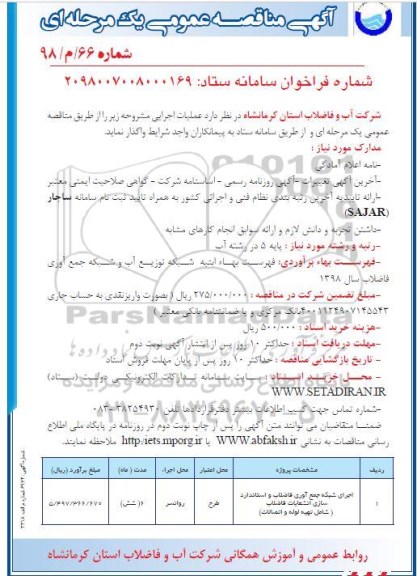 آگهی مناقصه عمومی یک مرحله ای
شماره ۶۶/م/۹۸
شماره فراخوان سامانه ستاد: ۲۰۹۸۰۰۷۰۰۸۰۰۰۱۶۹
شرکت آب و فاضلاب استان کرمانشاه در نظر دارد عملیات اجرایی مشروحه زیر را از طریق مناقصه
عمومی یک مرحله ای و از طریق سامانه ستاد به پیمانکاران واجد شرایط واگذار نماید.
مدارک مورد نیاز :
-نامه اعلام آمادگی
-آخرین آگهی تغییرات -آگهی روزنامه رسمی - اساسنامه شرکت - گواهی صلاحیت ایمنی معتبر
-ارائه تاییدیه آخرین رتبه بندی نظام فنی و اجرائی کشور به همراه تایید ثبت نام سامانه ساجار
(SAJAR)
-داشتن تجربه و دانش لازم و ارائه سوابق انجام کارهای مشابه
-رتبه و رشته مورد نیاز : پایه ۵ در رشته آب
-فهرست بهاء برآوردی: فهرست بهاء ابنیه شبکه توزیع آب و شبکه جمع آوری
فاضلاب سال ۱۳۹۸
-مبلغ تضمین شرکت در مناقصه : ۲۷۵/۰۰۰/۰۰۰ ریال ( بصورت واریز نقدی به حساب جاری
۴۰۰۱۱۲۴۹۰۷۱۴۵۵۴۳ بانک مرکزی و یا ضمانتنامه بانکی معتبر)
-هزینه خرید اسناد : ۵۰۰/۰۰۰ ریال
-مهلت دریافت اسناد : حداکثر ۱۰ روز پس از انتشار آگهی نوبت دوم
- تاریخ بازگشایی مناقصه : حداکثر ۱۰ روز پس از پایان مهلت فروش اسناد
- محل خرید اسناد : سایت سامانه تدارکات الکترونیکی دولت (ستاد)
WWW.SETADIRAN.IR
-شماره تماس جهت کسب اطلاعات بیشتر دفتر قراردادها تلفن ۳۸۲۵۴۹۳۰-۰۸۳
ضمنا متقاضیان می توانند متن آگهی را پس از چاپ نوبت دوم در روزنامه در پایگاه ملی اطلاع
رسانی مناقصات به نشانی WWW.abfaksh.ir یا http://iets.mporg.ir ملاحظه نمایند.
ردیف مشخصات پروژه محل اعتبار محل اجراء مدت ( ماه) مبلغ برآورد (ریال)
۱ اجرای شبکه جمع آوری فاضلاب و استاندارد سازی انشعابات فاضلاب ( شامل تهیه لوله و اتصالات) طرح روانسر ۶( شش) ۵/۴۹۷/۳۶۶/۶۷۰
روابط عمومی و آموزش همگانی شرکت آب و فاضلاب استان کرمانشاه